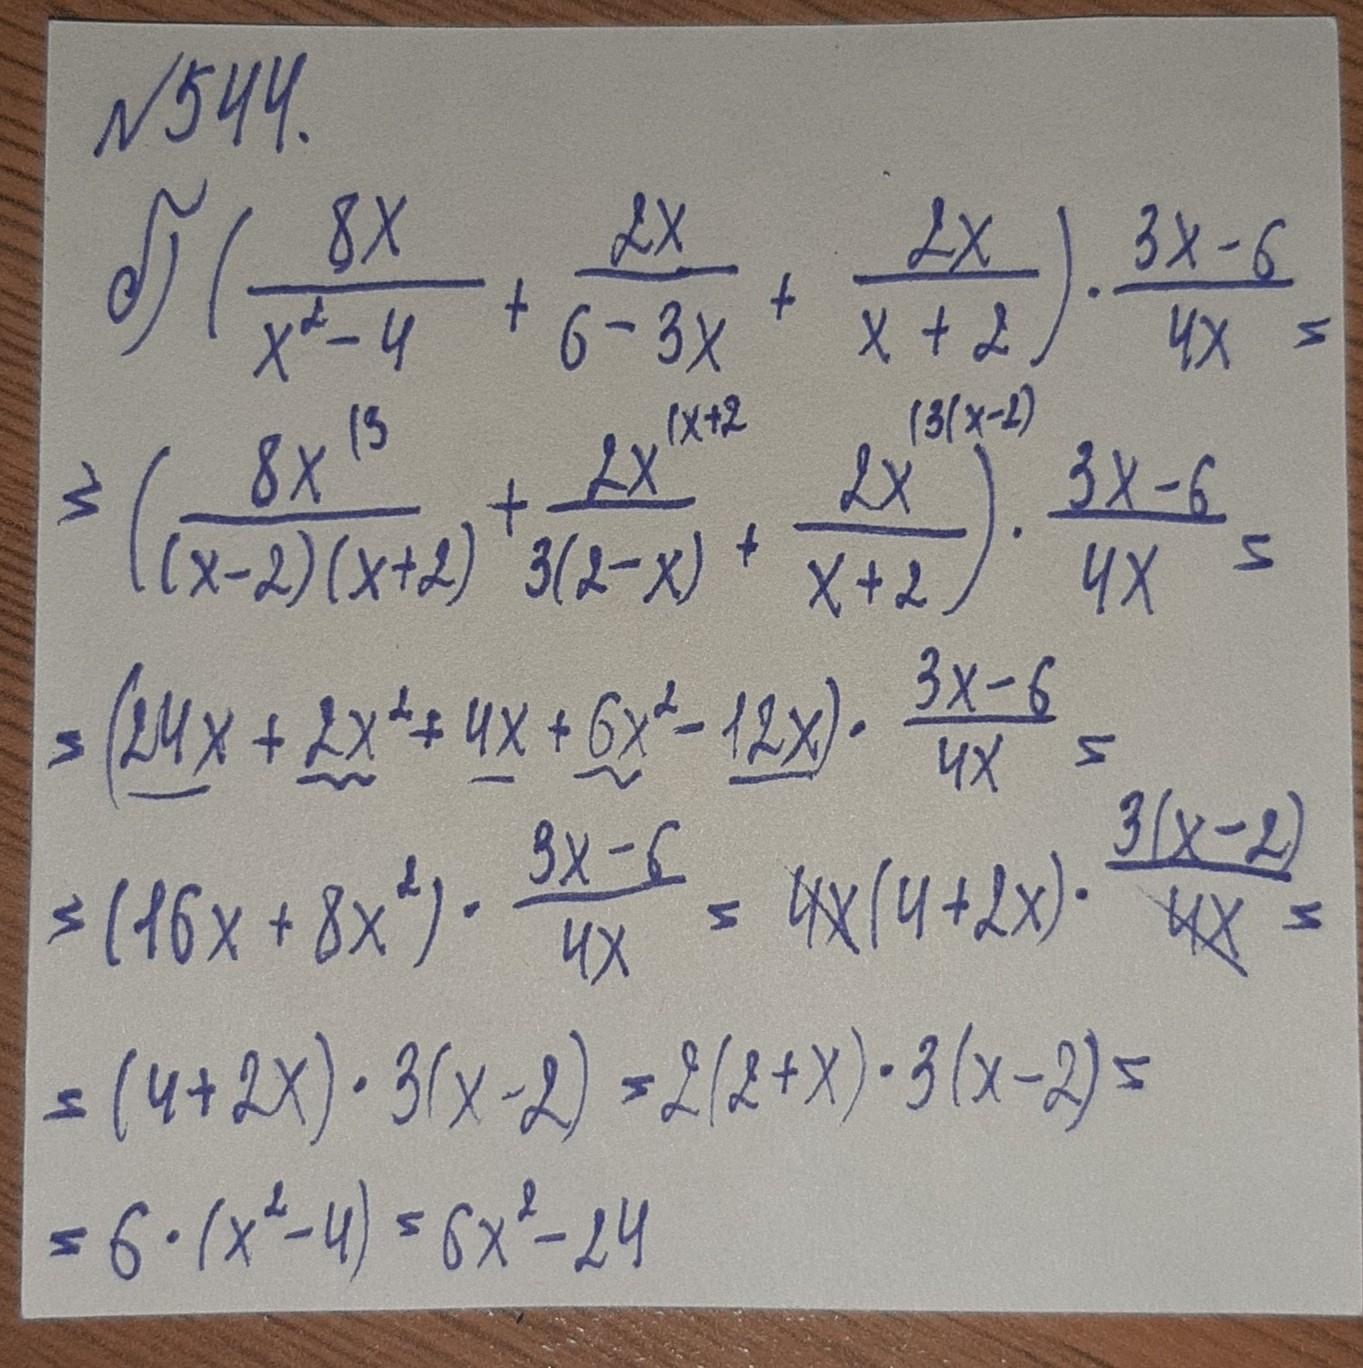 №544.
б) (8x/(x²-4) + 2x/(6-3x) + 2x/(x+2)) · (3x-6)/4x =
= (8x^(3/((x-2)(x+2)) + 2x^(x+2/(3(2-x)) + 2x^(3(x-2)/(x+2)) · (3x-6)/4x =
= (24x + 2x² + 4x + 6x² - 12x) · (3x-6)/4x =
= (16x + 8x²) · (3x-6)/4x = 4x(4+2x) · 3(x-2)/4x =
= (4+2x) · 3(x-2) = 2(2+x) · 3(x-2) =
= 6 · (x²-4) = 6x²-24